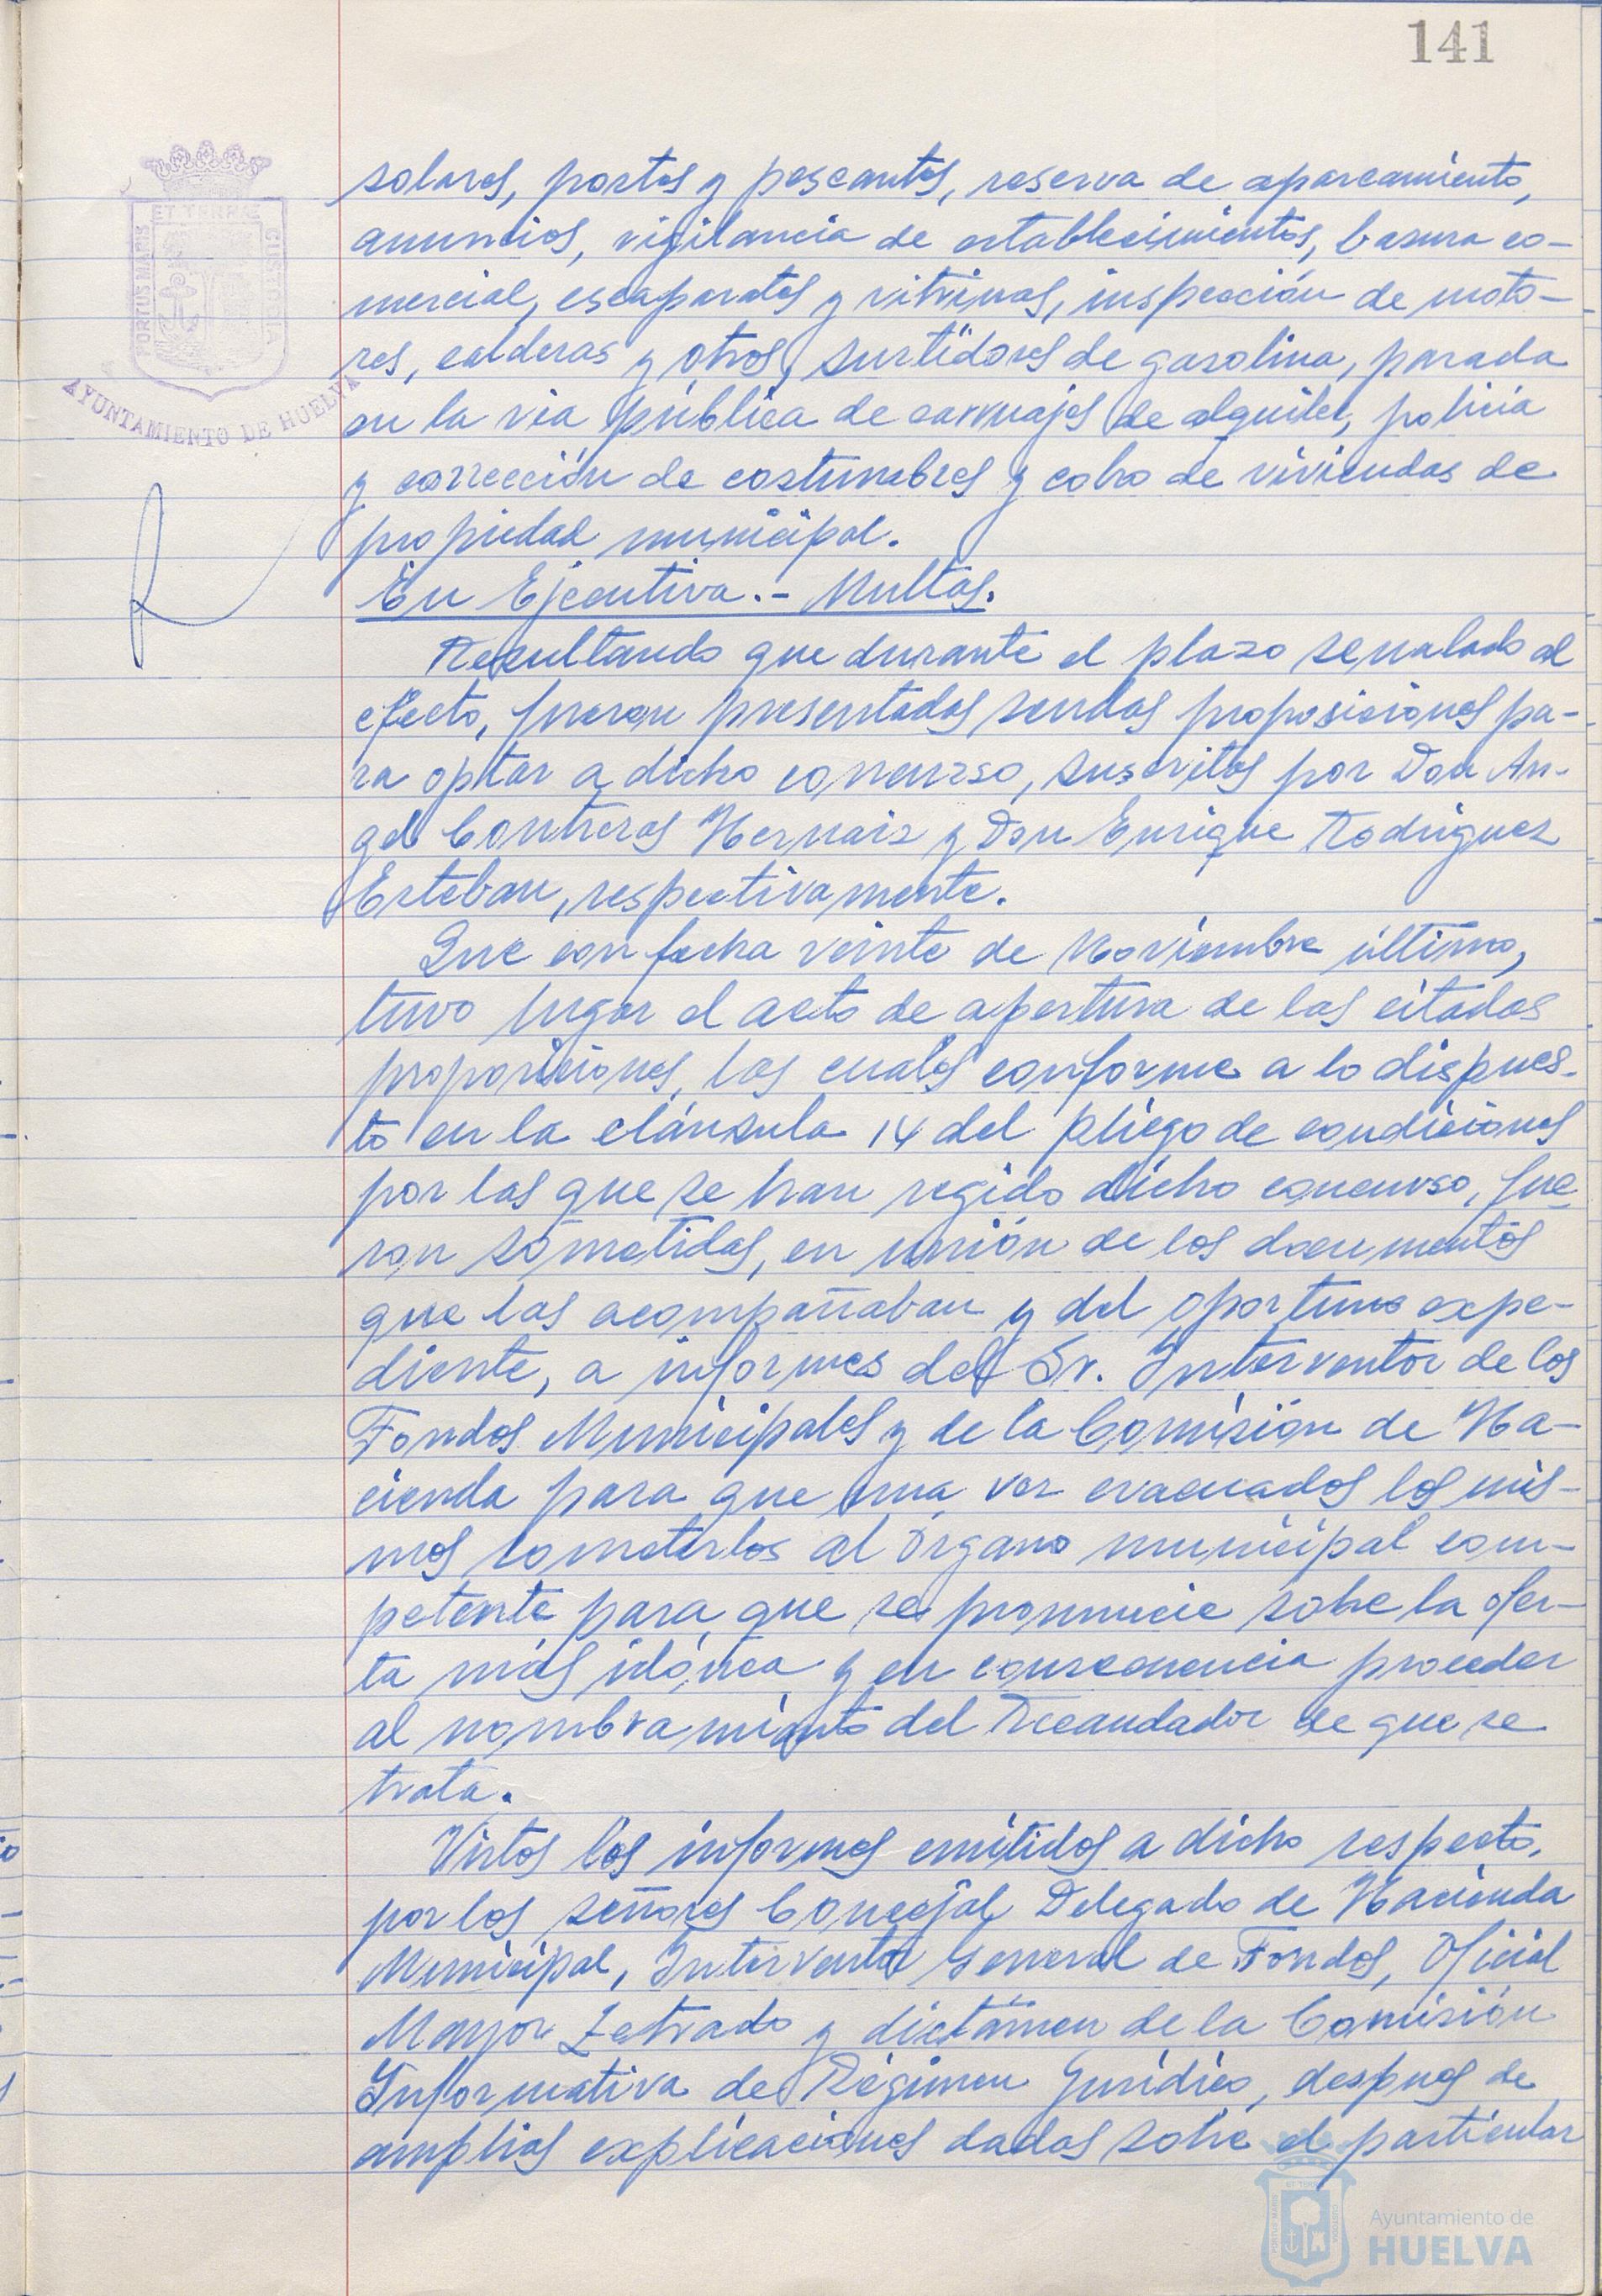 141
PORTUS MARIS ET TERRAE CUSTODIA
AYUNTAMIENTO DE HUELVA
solares, postes y pescantes, reserva de aparcamiento,
anuncios, vigilancia de establecimientos, basura co-
mercial, escaparates y vitrinas, inspección de moto-
res, calderas y otros, surtidores de gasolina, parada
en la via pública de carruajes de alquiler, policia
y corrección de costumbres y cobro de viviendas de
propiedad municipal.
En Ejecutiva.- Multas.
Resultando que durante el plazo señalado al
efecto, fueron presentadas sendas proposiciones pa-
ra optar a dicho concurso, suscritas por Don An-
gel Contreras Hernaiz y Don Enrique Rodriguez
Esteban, respectivamente.
Que con fecha veinte de Noviembre último,
tuvo lugar el acto de apertura de las citadas
proposiciones, las cuales conforme a lo dispues-
to en la cláusula 14 del pliego de condiciones
por las que se han regido dicho concurso, fue
ron sometidas, en unión de los documentos
que las acompañaban y del oportuno expe-
diente, a informes del Sr. Interventor de los
Fondos Municipales y de la Comisión de Ha-
cienda para que una vez evacuados los mis-
mos someterlos al órgano municipal com-
petente para que se pronuncie sobre la ofer-
ta más idónea y en consecuencia proceder
al nombramiento del Recaudador de que se
trata.
Vistos los informes emitidos a dicho respecto,
por los señores Concejal Delegado de Hacienda
Municipal, Interventor General de Fondos, Oficial
Mayor Letrado y dictámen de la Comisión
Informativa de Régimen Jurídico, despues de
amplias explicaciones dadas sobre el particular
Ayuntamiento de
HUELVA